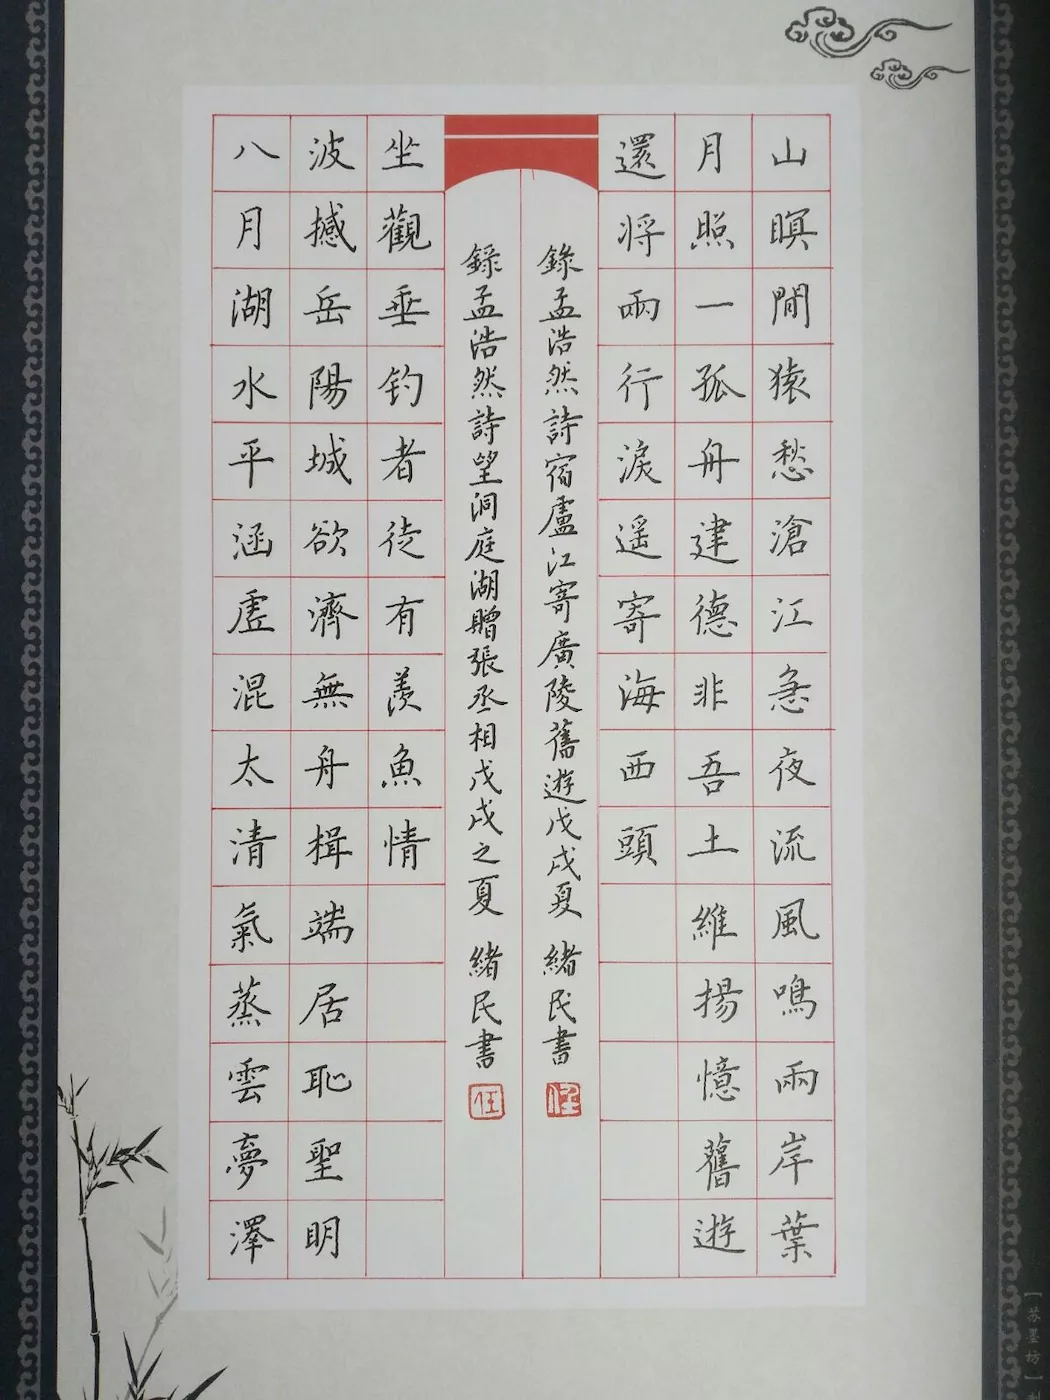 山瞑聞猿愁滄江急夜流風鳴兩岸葉
月照一孤舟建德非吾土維揚憶舊遊
還将兩行淚遥寄海西頭
錄孟浩然詩宿廬江寄廣陵舊遊戊戌夏 緒民書
八月湖水平涵虛混太清氣蒸雲夢澤
波撼岳陽城欲濟無舟楫端居恥聖明
坐觀垂钓者徒有羨魚情
錄孟浩然詩望洞庭湖贈張丞相戊戌之夏 緒民書
任
[苏墨坊]